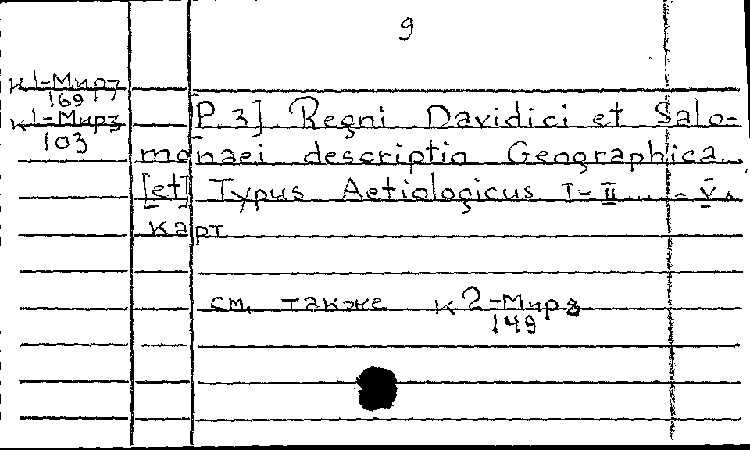 9
К1-Мирз
169
К1-Мирз
103
[P. 3] Regni Davidici et Salo-
monaei descriptio Geographica...
[et] Typus Aetiologicus I-II... - V.
карт
см. также К2-Мирз
149